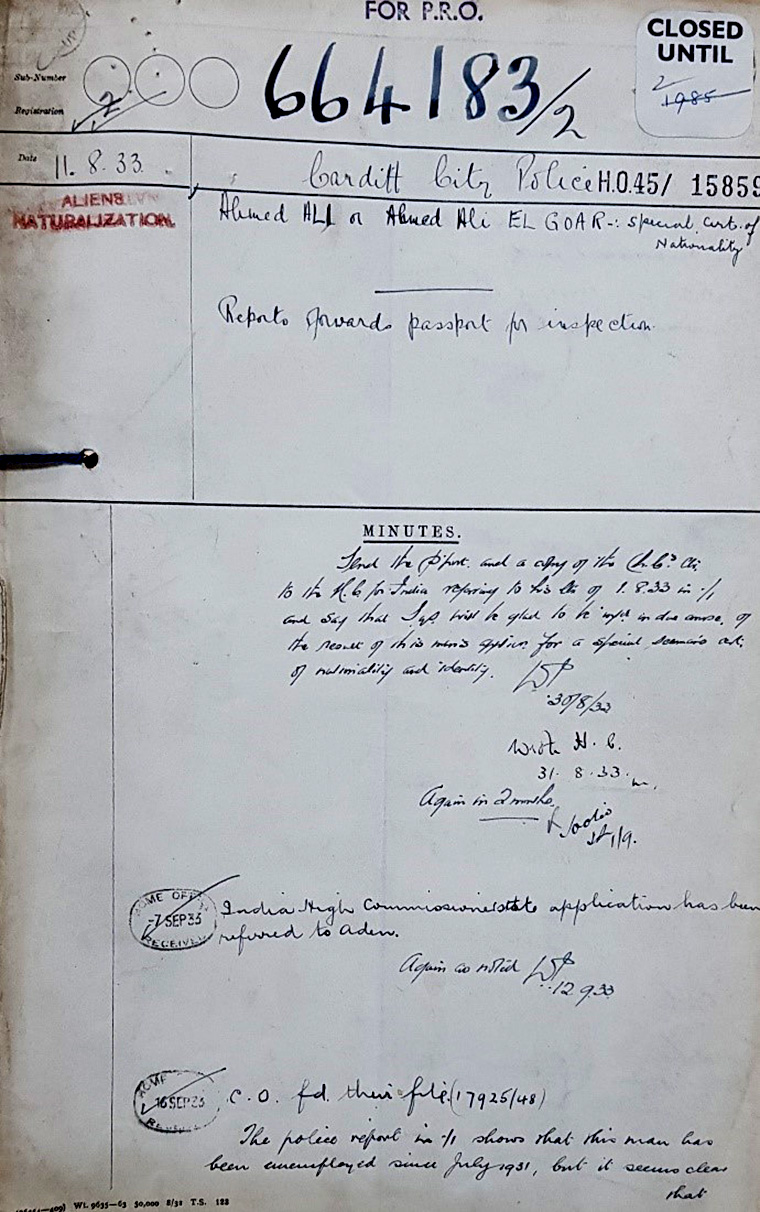 FOR P.R.O.
CLOSED
UNTIL
1985
Sub-Number
Registration
2
664183/2
Date
11. 8. 33.
Cardiff City Police H.O.45/ 15859
ALIENS
NATURALIZATION
Ahmed ALI or Ahmed Ali EL GOAR-: Special Cert. of
Nationality
Reports forwards passport for inspection
MINUTES.
Send the p'port. and a copy of the
to the H.C for India referring to his of 1.8.33 in /1
and say that S of S. will be glad to be in due course, of
the result of this man's applicn. for a special seamans cert.
of nationality and identity.
30/8/33
Wrote H. C.
31. 8. 33.
Again in 2 months.
1/9.
HOME OFFICE
-7 SEP 33
RECEIVED
India High Commissioner state application has been
referred to Aden.
Again as noted
12 9 33
HOME
16 SEP 33
C. O. fd. their file (17925/48)
The police report in /1 shows that this man has
been unemployed since July 1931, but it seems clear
that
Wt. 9635—63 50,000 8/32 T.S. 128